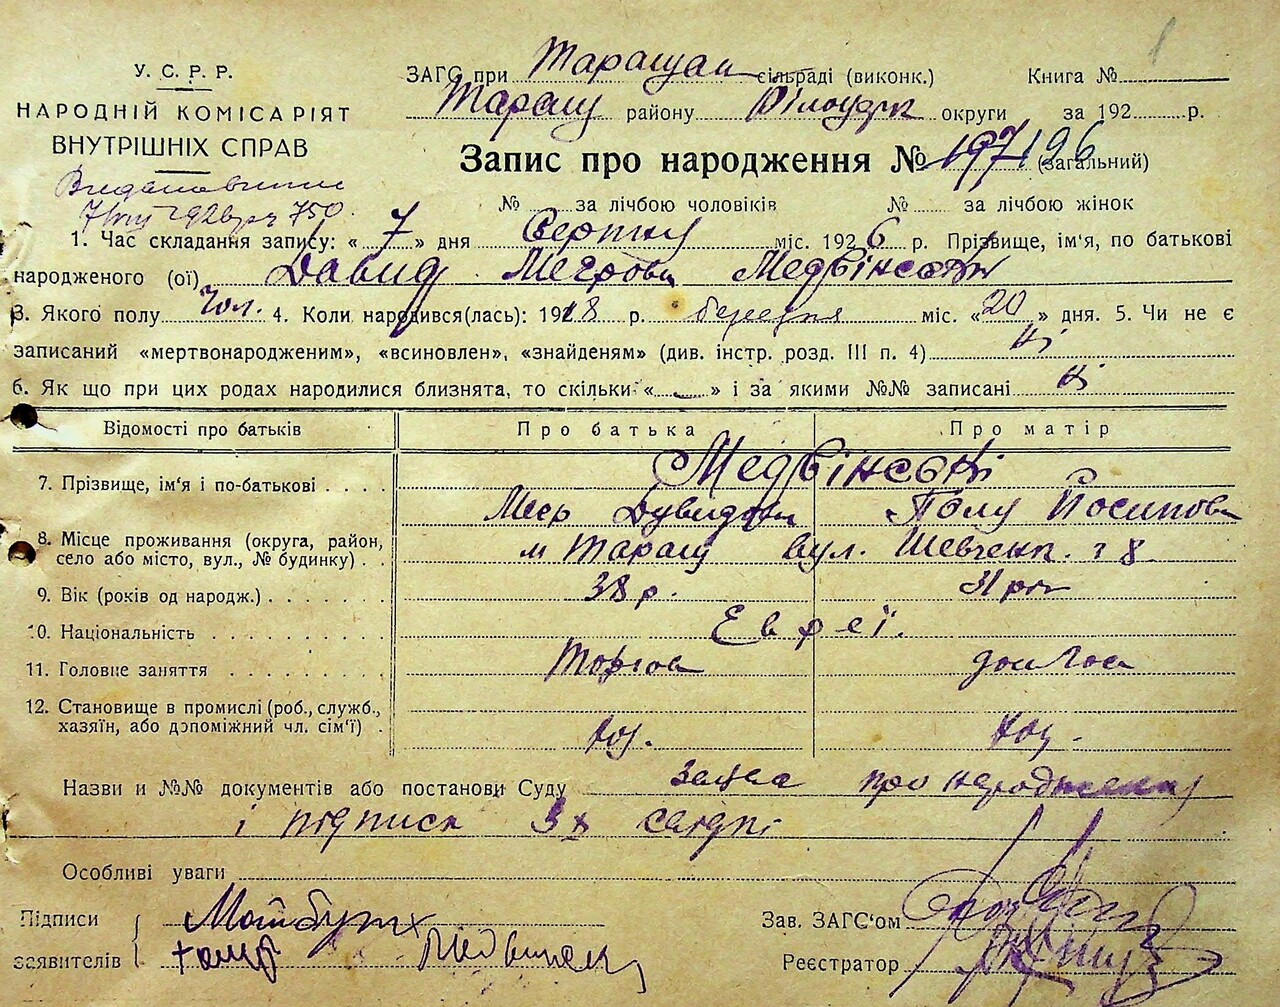 1
У. С. Р. Р.
НАРОДНІЙ КОМІСАРІЯТ
ВНУТРІШНІХ СПРАВ
ЗАГС при Таращан сільраді (виконк.) Книга №
Таращ району Білоцерк округи за 192 р.
Запис про народження № 197 196 (загальний)
750
№ за лічбою чоловіків № за лічбою жінок
1. Час складання запису: « 7 » дня Серпню міс. 1926 р. Прізвище, ім'я, по батькові
народженого (ої) Давид Меєрович Медвінский
3. Якого полу чол. 4. Коли народився(лась): 1918 р. березня міс. «20» дня. 5. Чи не є
записаний «мертвонародженим», «всиновлен», «знайденям» (див. інстр. розд. III п. 4) Ні
6. Як що при цих родах народилися близнята, то скільки «—» і за якими №№ записані Ні
Відомості про батьків Про батька Про матір
7. Прізвище, ім'я і по-батькові Медвінські
Меєр Дувидович Полу Йосипова
8. Місце проживання (округа, район,
село або місто, вул., № будинку) м Таращ вул. Шевченк. 8
9. Вік (років од народж.) 38 р. 31 рік
10. Національність Евреї.
11. Головне заняття Торгов дом госп
12. Становище в промислі (роб., служб.,
хазяїн, або допоміжний чл. сім'ї)
Назви и №№ документів або постанови Суду Заява про народження
і підписи 3х свідків
Особливі уваги
Підписи
заявителів
Зав. ЗАГС'ом
Реєстратор